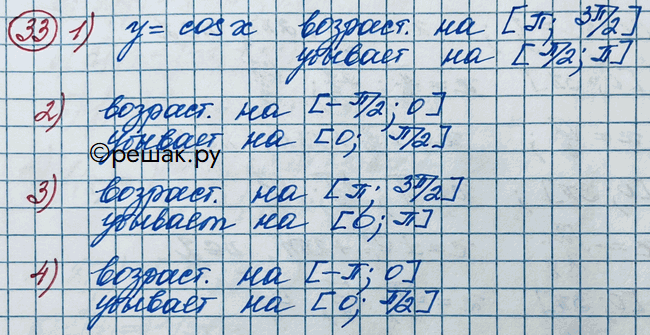 33 1) y = cos x возраст. на [π; 3π/2]
убывает на [π/2; π]
2) возраст. на [-π/2; 0]
убывает на [0; π/2]
©решак.ру
3) возраст. на [π; 3π/2]
убывает на [0; π]
4) возраст. на [-π; 0]
убывает на [0; π/2]